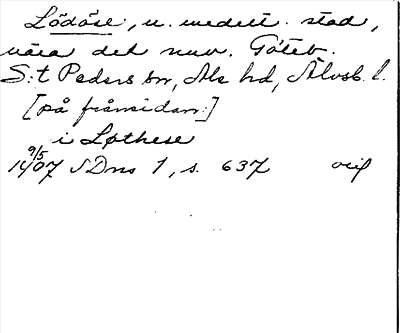 Lödöse, u. medelt. stad,
nära det nuv. Göteb.
S:t Peders sn, Ale hd, Älvsb. l.
[på framsidan:]
i Løthese
9/5
1407 SDns 1, s. 637 orig